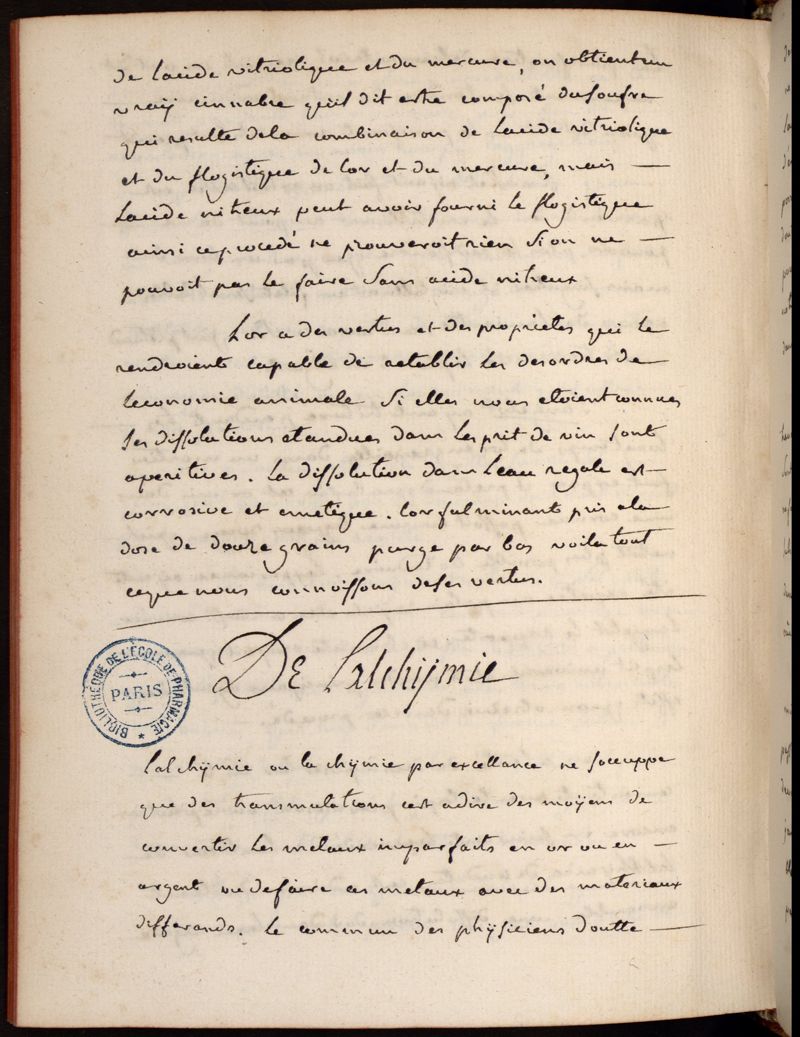 de lacide vitriolique et du mercure, on obtient un
vraÿ cinnabre quil dit estre composé du soufre
qui resulte dela combinaison de lacide vitriolique
et du flogistique de lor et du mercure, mais —
lacide nitreux peut avoir fourni le flogistique
ainsi ce procedé ne prouveroit rien si on ne —
pouvoit pas le faire sans acide nitreux
Lor a des vertus et des proprietes qui le
rendroient capable de retablir les desordres de
leconomie animale si elles nous etoient connues
ses dissolutions etandues dans lesprit de vin sont
aperitives. la dissolution dans leau regale est
corrosive et emetique. lor fulminant pris ala
dose de douze grains purge par bas voila tout
ceque nous connoissons deses vertus.
De Lalchÿmie
BIBLIOTHÈQUE DE L'ÉCOLE DE PHARMACIE
PARIS
Lalchÿmie ou la chÿmie par excellance ne soccuppe
que des transmutations cest adire des moÿens de
convertir les metaux imparfaits en or ou en —
argent ou defaire ces metaux avec des materiaux
differands. le commun des phÿsiciens doutte —